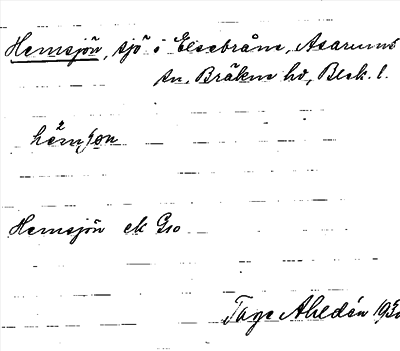 Hemsjön, sjö i Elsebråne, Asarums
sn, Bräkne hd, Blek. l.
hemʃön
Hemsjön ek G10
Tage Ahldén 193